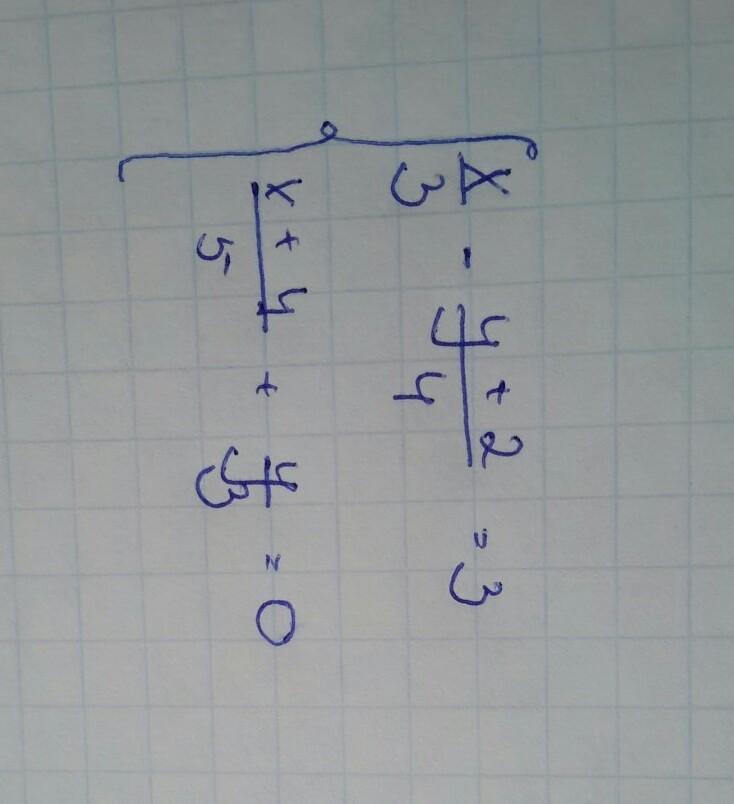 x/3 - (y + 2)/4 = 3
(x + 4)/5 + y/3 = 0